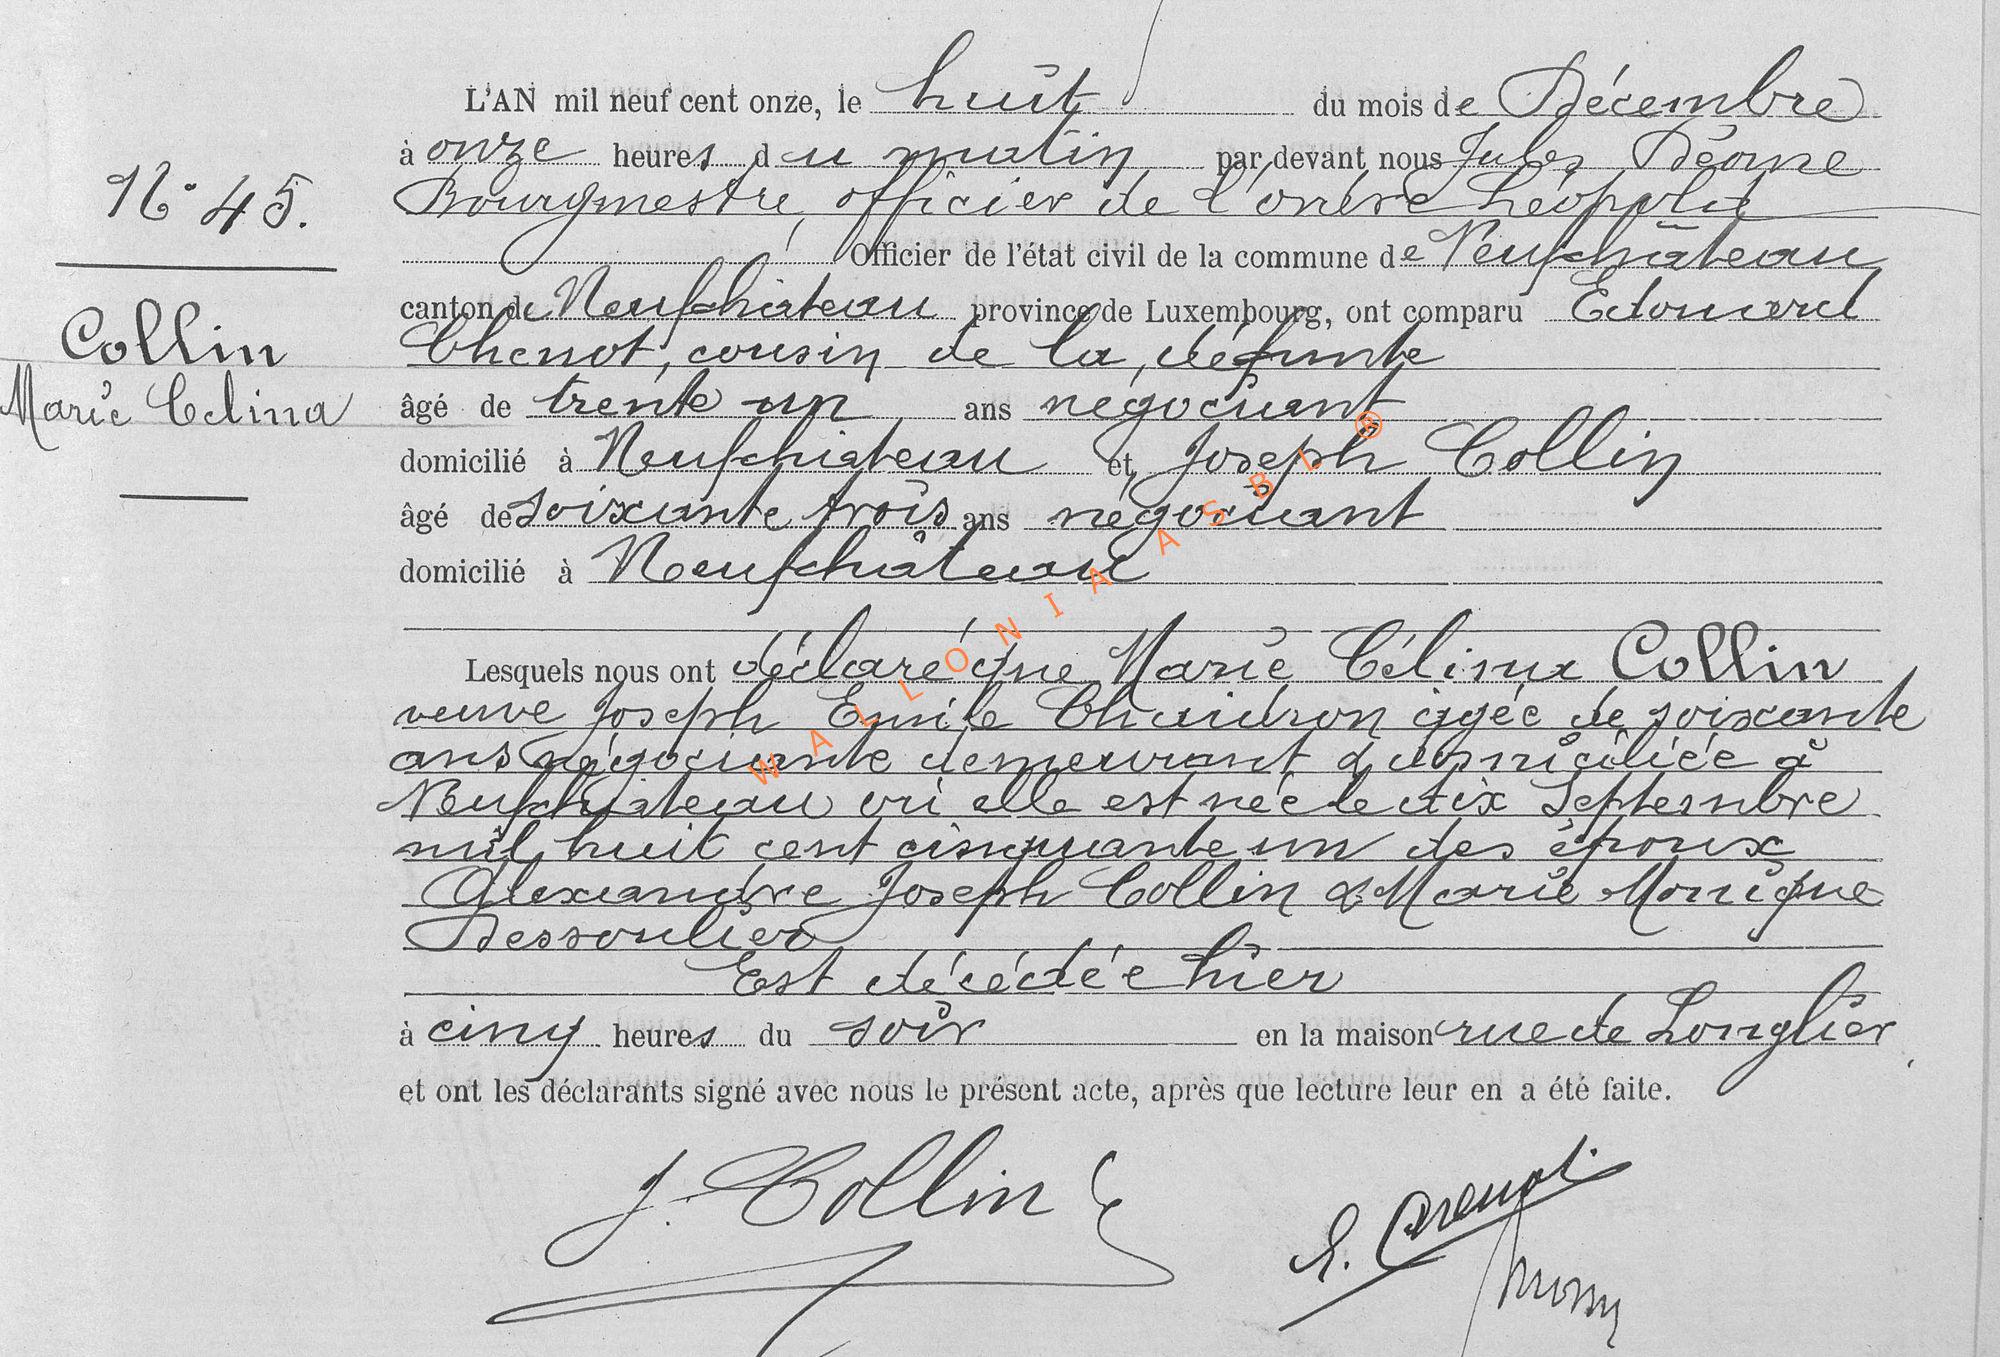 L'AN mil neuf cent onze, le huit du mois de Décembre
à onze heures du matin par devant nous Jules
Bourgmestre, officier de l'ordre Léopold
Officier de l'état civil de la commune de Neufchâteau
N° 45.
canton de Neufchâteau province de Luxembourg, ont comparu Edouard
Chenot, cousin de la défunte
Collin
Marie Celina
âgé de trente un ans négociant
domicilié à Neufchateau et Joseph Collin
âgé de soixante trois ans négociant
domicilié à Neufchâteau
WALLONIA ASBL ®
Lesquels nous ont déclaré que Marie Célina Collin
veuve Joseph Emile Chaidron agée de soixante
ans négociante demeurant & domiciliée à
Neufchateau où elle est née le dix Septembre
mil huit cent cinquante un des époux
Alexandre Joseph Collin & Marie Monique
Dessoulier
Est décédée hier
à cinq heures du soir en la maison rue de Longlier
et ont les déclarants signé avec nous le présent acte, après que lecture leur en a été faite.
J. Collin
E. Chenot